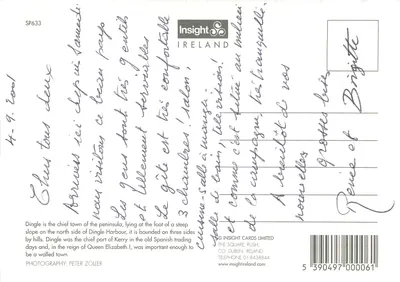 SP633
Insight
IRELAND
4-9-2001
Chers tous deux
Arrivés ici depuis samedi
nous visitons ce beau pays
Les gens sont très gentils
et tellement serviables
Le gîte est très confortable
3 chambres! salon,
cuisine-salle à manger
et comme c'est situé en milieu
de la campagne, très tranquille.
A bientôt de vos
nouvelles
grosses bises
Renée et Brigitte
Dingle is the chief town of the peninsula, lying at the foot of a steep
slope on the north side of Dingle Harbour, it is bounded on three sides
by hills. Dingle was the chief port of Kerry in the old Spanish trading
days and, in the reign of Queen Elizabeth I, was important enough to
be a walled town
PHOTOGRAPHY: PETER ZOLLER
© INSIGHT CARDS LIMITED
THE SQUARE, RUSH,
CO. DUBLIN, IRELAND
TELEPHONE 01-8438444
www.insightireland.com
5 390497 000061